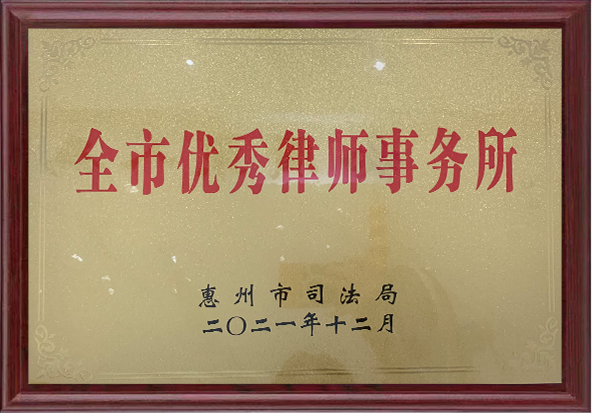 全市优秀律师事务所
惠州市司法局
二〇二一年十二月